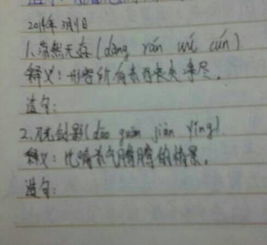 2014年2月9日
1.荡然无存(dàng rán wú cún)
释义:形容所有东西丧失净尽。
造句:
2.刀光剑影(dāo guāng jiàn yǐng)
释义:比喻杀气腾腾的情景。
造句: